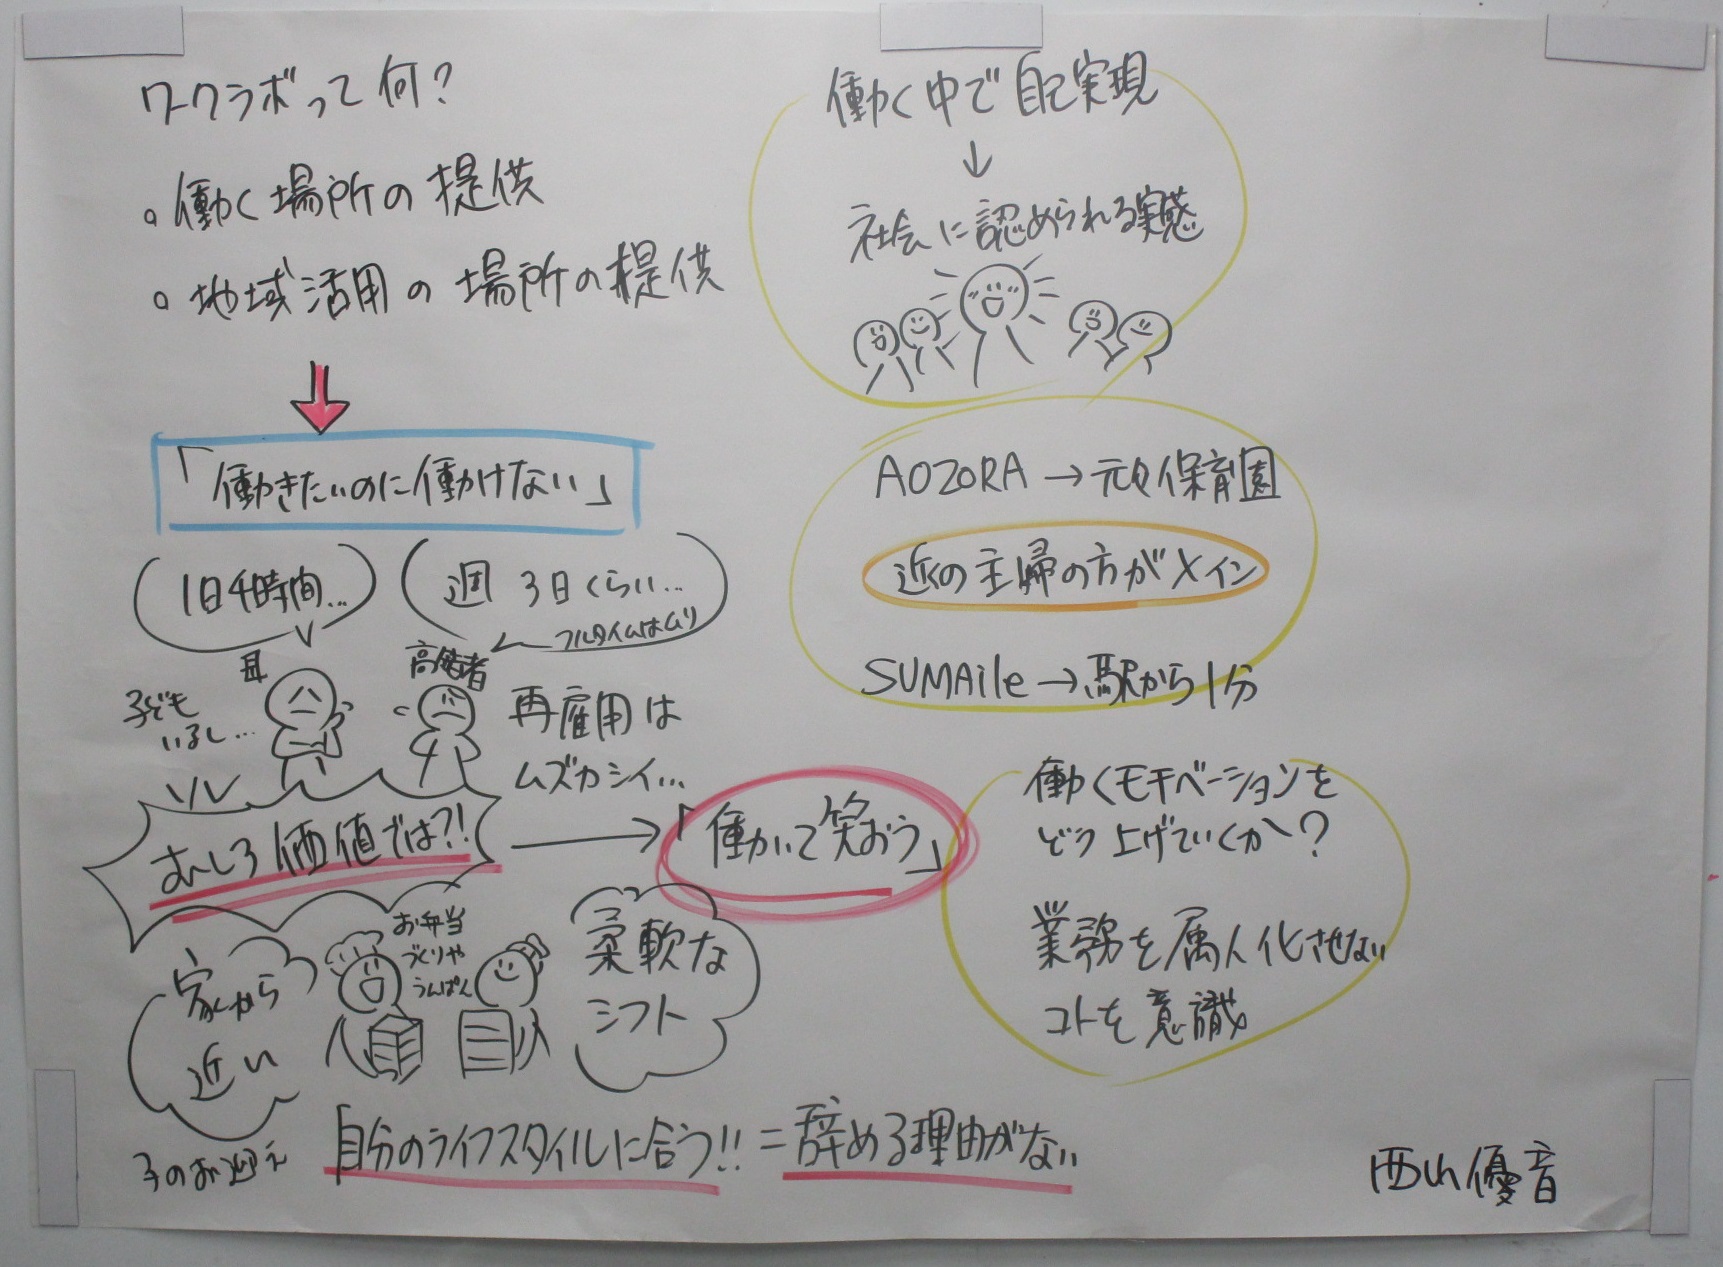 ワークラボって何?
。働く場所の提供
。地域活用の場所の提供
「働きたいのに働けない」
1日4時間...
週3日くらい...
フルタイムはムリ
母
高齢者
子ども
いるし...
再雇用は
ムズカシイ...
むしろ価値では?!
「働いて笑おう」
家から
近い
お弁当
づくりや
うんぱん
柔軟な
シフト
子のお迎え
自分のライフスタイルに合う!!=辞める理由がない
働く中で自己実現
↓
社会に認められる実感
AOZORA→元々保育園
近くの主婦の方がメイン
SUMAile→駅から1分
働くモチベーションを
どう上げていくか?
業務を属人化させない
コトを意識
西山優音